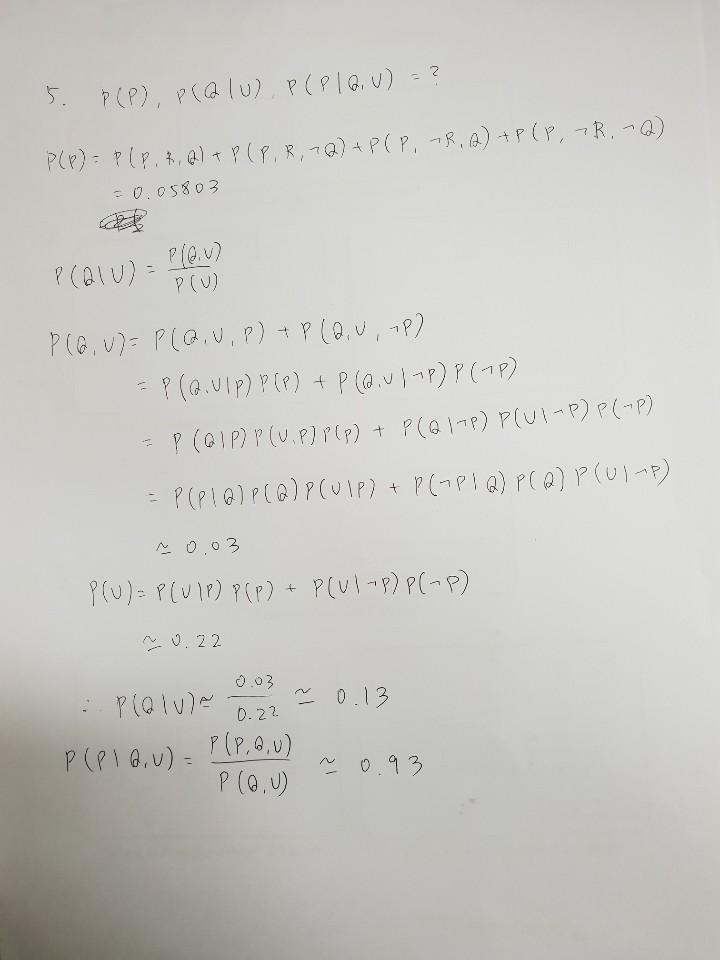 5. P(P), P(Q|U), P(P|Q,U) = ?
P(P) = P(P,R,Q) + P(P,R,¬Q) + P(P,¬R,Q) + P(P,¬R,¬Q)
= 0.05803
P(Q|U) = P(Q,U) / P(U)
P(Q,U) = P(Q,U,P) + P(Q,U,¬P)
= P(Q,U|P) P(P) + P(Q,U|¬P) P(¬P)
= P(Q|P) P(U,P) P(P) + P(Q|¬P) P(U|¬P) P(¬P)
= P(P|Q) P(Q) P(U|P) + P(¬P|Q) P(Q) P(U|¬P)
≃ 0.03
P(U) = P(U|P) P(P) + P(U|¬P) P(¬P)
≃ 0.22
∴ P(Q|U) ≃ 0.03 / 0.22 ≃ 0.13
P(P|Q,U) = P(P,Q,U) / P(Q,U) ≃ 0.93